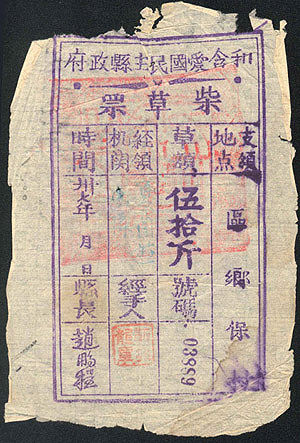 和含愛國民主縣政府
柴草票
支領地点
區鄉保村
草額
伍拾斤
號碼
03889
経領机関
經手人
時間
卅七年 月 日
縣長
趙鵬程